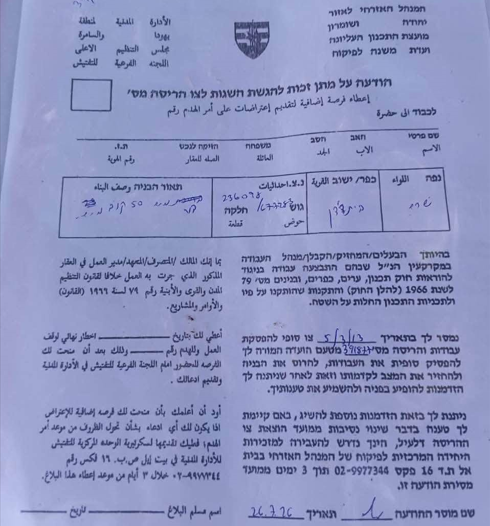 המנהל האזרחי לאזור
יהודה ושומרון
מועצת התכנון העליונה
ועדת משנה לפיקוח
الأدارة المدنية لمنطقة
يهودا والسامرة
مجلس التنظيم الاعلى
اللجنه الفرعية للتفتيش
הודעה על מתן זכות להגשת השגות לצו הריסה מס'
إعطاء فرصة إضافية لتقديم إعتراضات على أمر الهدم رقم
לכבוד الى حضرة
שם פרטי האב הסב משפחה הזיקה לנכס ת.ז.
الاسم الاب الجد العائلة الصله للعقار رقم الهوية
נפה اللواء כפר/ישוב القرية נ.צ.אחדאיות תאור הבניה وصف البناء
גוש חלקה
حوض قطعة
בהיותך הבעלים/המחזיק/הקבלן/מנהל העבודה
במקרקעין הנ"ל שבהם התבצעה עבודה בניגוד
להוראות חוק תכנון, ערים, כפרים, ובנינים מס' 79
לשנת 1966 (להלן החוק) והתקנות שהותקנו על פיו
ולתכניות התכנון החלות על השטח.
بما إنك المالك /المتصرف/المتعهد/مدير العمل في العقار
المذكور الذي جرت به العمل خلافا لقانون التنظيم
المدن والقرى والأبنية رقم ٧٩ لسنة ١٩٦٦ (القانون)
والأوامر والمشاريع.
נמסר לך בתאריך 5/3/13 צו סופי להפסקת
עבודות והריסה מס' מטעם הועדה המורה לך
להפסיק סופית את העבודות, להרוס את הבניה
ולהחזיר את המצב לקדמותו וזאת לאחר שניתנה לך
הזדמנות להופיע בפניה ולהשמיע את טענותיך.
أعطي لك بتاريخ إخطار نهائي لوقف
العمل والهدم رقم وذلك بعد أن منحت لك
الفرصه للحضور امام اللجنة الفرعية للتفتيش في الأدارة المدنية
وتقديم ادعائك.
ניתנת לך בזאת הזדמנות נוספת להשיג, באם קיימת
לך טענה בדבר שינוי נסיבות ממועד הוצאת צו
ההריסה דלעיל, הינך נדרש להעבירה למזכירות
היחידה המרכזית לפיקוח של המנהל האזרחי בבית
אל ת.ד 16 פקס 02-9977344 תוך 3 ימים ממועד
מסירת הודעה זו.
أود أن أعلمك بأن منحت لك فرصه إضافية للإعتراض
اذا يكون لك أي ادعاء بشأن تحول الظروف من موعد أمر
الهدم؛ فعليك تقديمها لسكرتيرية الوحدة المركزية للتفتيش
للأدارة المدنية في بيت إيل ص.ب. ١٦ فكس رقم
٠٢-٩٩٧٧٣٤٤ خلال ٣ أيام من موعد إعطاء هذا البلاغ.
שם מוסר ההודעה תאריך
اسم مسلم البلاغ تاريخ